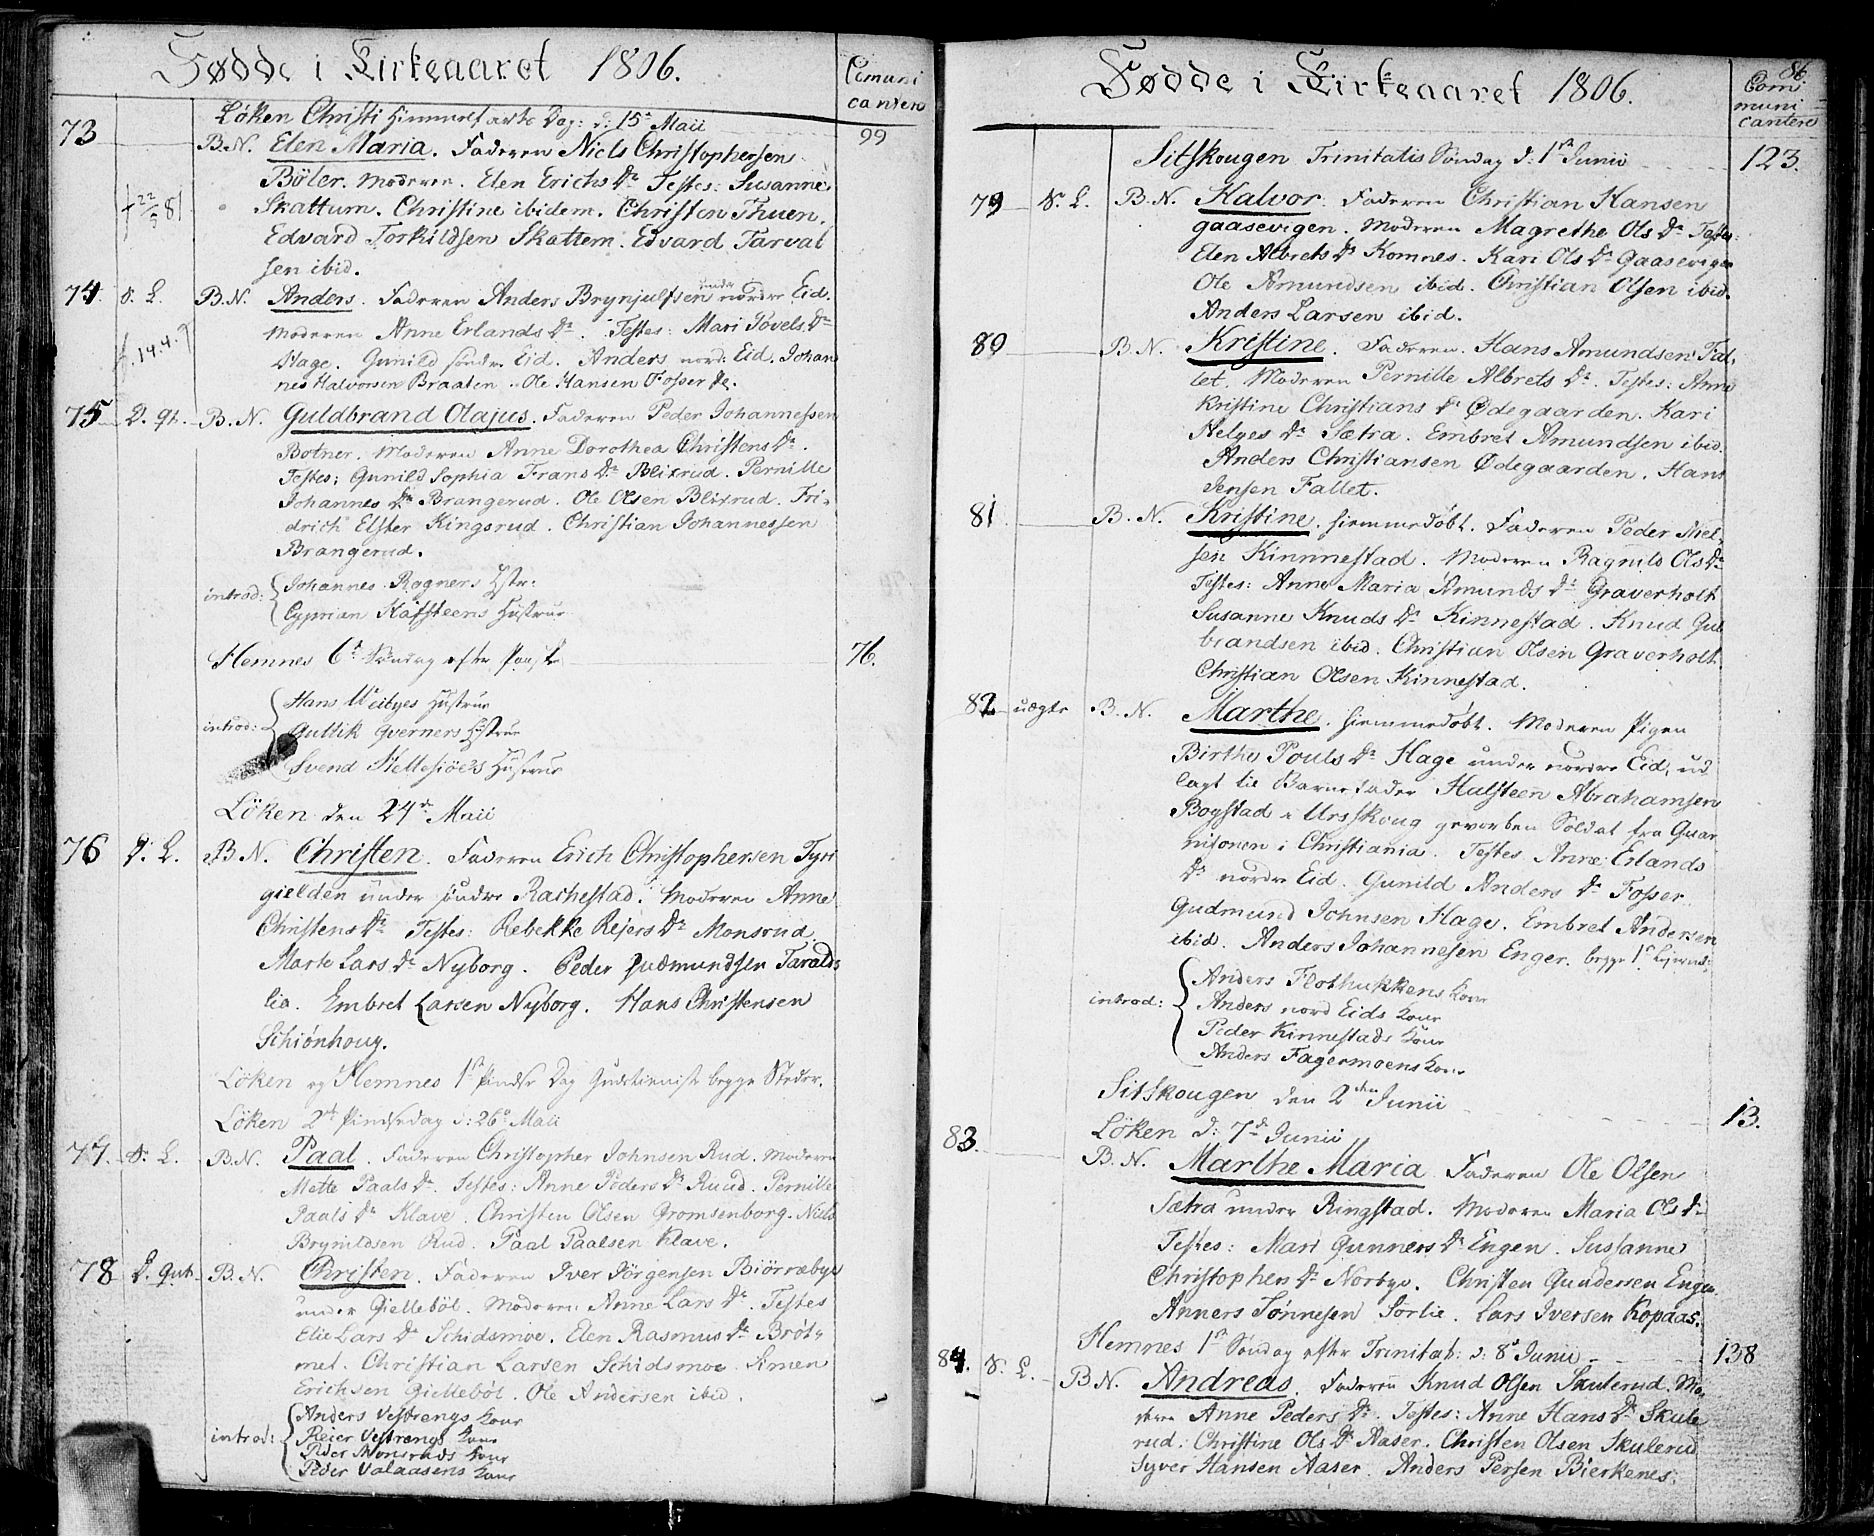 Fødde i Kirkeaaret 1806.
Comuni
canten
Löken Christi Himmelfarts Dag: d: 15de Maii
99
73
B.N. Elen Maria. Faderen Niels Christophersen
Böler. Moderen. Elen Erichs Dr Testes: Susanne
† 22/5 81
Skattum. Christine ibidem. Christen Thuen.
Edvard Torkildsen Skattem. Edvard Tarval
sen ibid.
74. S. L. B.N. Anders. Faderen Anders Brynjulfsen under nordre Eid.
Moderen Anne Erlands Dr. Testes: Mari Povels Dr
14.4.
Hage. Gunild söndr Eid. Anders nord: Eid. Johan
nes Halvorsen Braaten. Ole Hansen Fosser
75 D. qt. B.N. Guldbrand Olajus. Faderen Peder Johannessen
Botner. Moderen Anne Dorothea Christens Dr.
Testes; Gunild Sophia Frans Dr Blixrud. Pernille
Johannes Dr Brangerud. Ole Olsen Blixrud. Fri-
drich Elster Kingsrud. Christian Johannessen
Brangerud.
introd: Johannes Ragners Hstr:
Cyprian Kafsteens Hustrue
Hemnes 6te Söndag efter Paaske
76.
introd: Hans Meibyes Hustrue
Guttik Gverners Hstrue
Svend Hellesiöes Hustrue
Löken den 24de Maii
76 D. L. B.N. Christen. Faderen Erich Christophersen Tyri
gielden under söndre Rachestad. Moderen Anne
Christens Dr Testes: Rebekke Rejers Dr Monsrud
Marte Lars Dr Nyborg. Peder Gudmundsen Taralds
lia. Embret Larsen Nyborg. Hans Christensen
Schiönhoug.
Löken og Hemnes 1ste Pindse Dag Gudstieniste begge Steder.
Löken 2den Pindsedag d: 26de Maii
77. S. L. B.N. Paal. Faderen Christopher Johnsen Rud. Moderen
Mette Paals Dr. Testes: Anne Peders Dr Ruud. Pernille
Paals Dr Klave. Christen Olsen Gromsenborg. Niels
Brynildsen Rud. Paal Paalsen Klave.
78 D. qut. B.N. Christen. Faderen Iver Jörgensen Biörnebye
under Giellebøl. Moderen Anne Lars Dr. Testes
Elie Lars Dr Schidsmoe. Elen Rasmus Dr Bröt-
met. Christian Larsen Schidsmoe Simen
Erichsen Giellebøl. Ole Andersen ibid.
introd: Anders Vestrengs Kone
Reier Vestrengs Kone
Peder Monsruds Kone
Peder Valaasens Kone
Fødde i Kirkeaaret 1806.
86
Com
muni
cantere
Sitskougen Trinitatis Söndag d: 1ste Junii
123.
79 S. L. B.N. Halvor. Faderen Christian Hansen
gaasevigen. Moderen Magrethe Ols Dr Testes:
Elen Albrets Dr Komnes. Kari Ols Dr Gaasevigen
Ole Amundsen ibid. Christian Olsen ibid.
Anders Larsen ibid.
80 B.N. Kristine. Faderen. Hans Amundsen Fal-
let. Moderen Pernille Albrets Dr. Testes: Anne
Kristine Christians Dr Ødegaarden. Kari
Helges Dr Sætra. Embret Amundsen ibid.
Anders Christiansen Ødegaarden. Hans
Jensen Fallet.
81 B.N. Kristine. hiemmedöbt. Faderen Peder Niel-
sen Kinnnestad. Moderen Ragnild Ols Dr
Testes: Anne Maria Amunds Dr Graverholt
Susanne Knuds Dr Kinnestad. Knud Gul
brandsen ibid. Christian Olsen Graverholt.
Christian Olsen Kinnestad.
82 uægte B.N. Marthe. hiemmedöbt. Moderen Pigen
Birthe Pouls Dr Hage under nordre Eid, ud
lagt til Barnefader Hulsteen Abrahamsen
Bogstad i Ursskoug gevorben Soldat fra Guar
nisonen i Christiania. Testes Anne Erlands
Dr nordre Eid. Gunild Anders Dr Fosser.
Gudmund Johnsen Hage. Embret Andersen
ibid. Anders Johannesen Enger. begge 1ste
introd: Anders Flothukkens Kone
Anders nord Eids Kone
Peder Kinnestads Kone
Anders Fagermoens Kone
Sitskougen den 2den Junii
13.
Löken d: 7de Junii
83. B.N. Marthe Maria. Faderen Ole Olsen
Sætra under Ringstad. Moderen Maria Ols Dr
Testes: Mari Gunners Dr Engen. Sussanne
Christophers Dr Norbye. Christen Gundersen Engen
Anners Tönnesen Sorlie. Lars Iversen Kopaas.
Hemnes 1ste Söndag efter Trinitat: d: 8de Junii
138
84. S. L. B.N. Andreas. Faderen Knud Olsen Skulerud. Mo-
deren Anne Peders Dr. Testes: Anne Hans Dr Skule
rud. Christine Ols Dr Aaser. Christen Olsen Skulerud
Syver Hansen Aaser. Anders Persen Bierkenes.